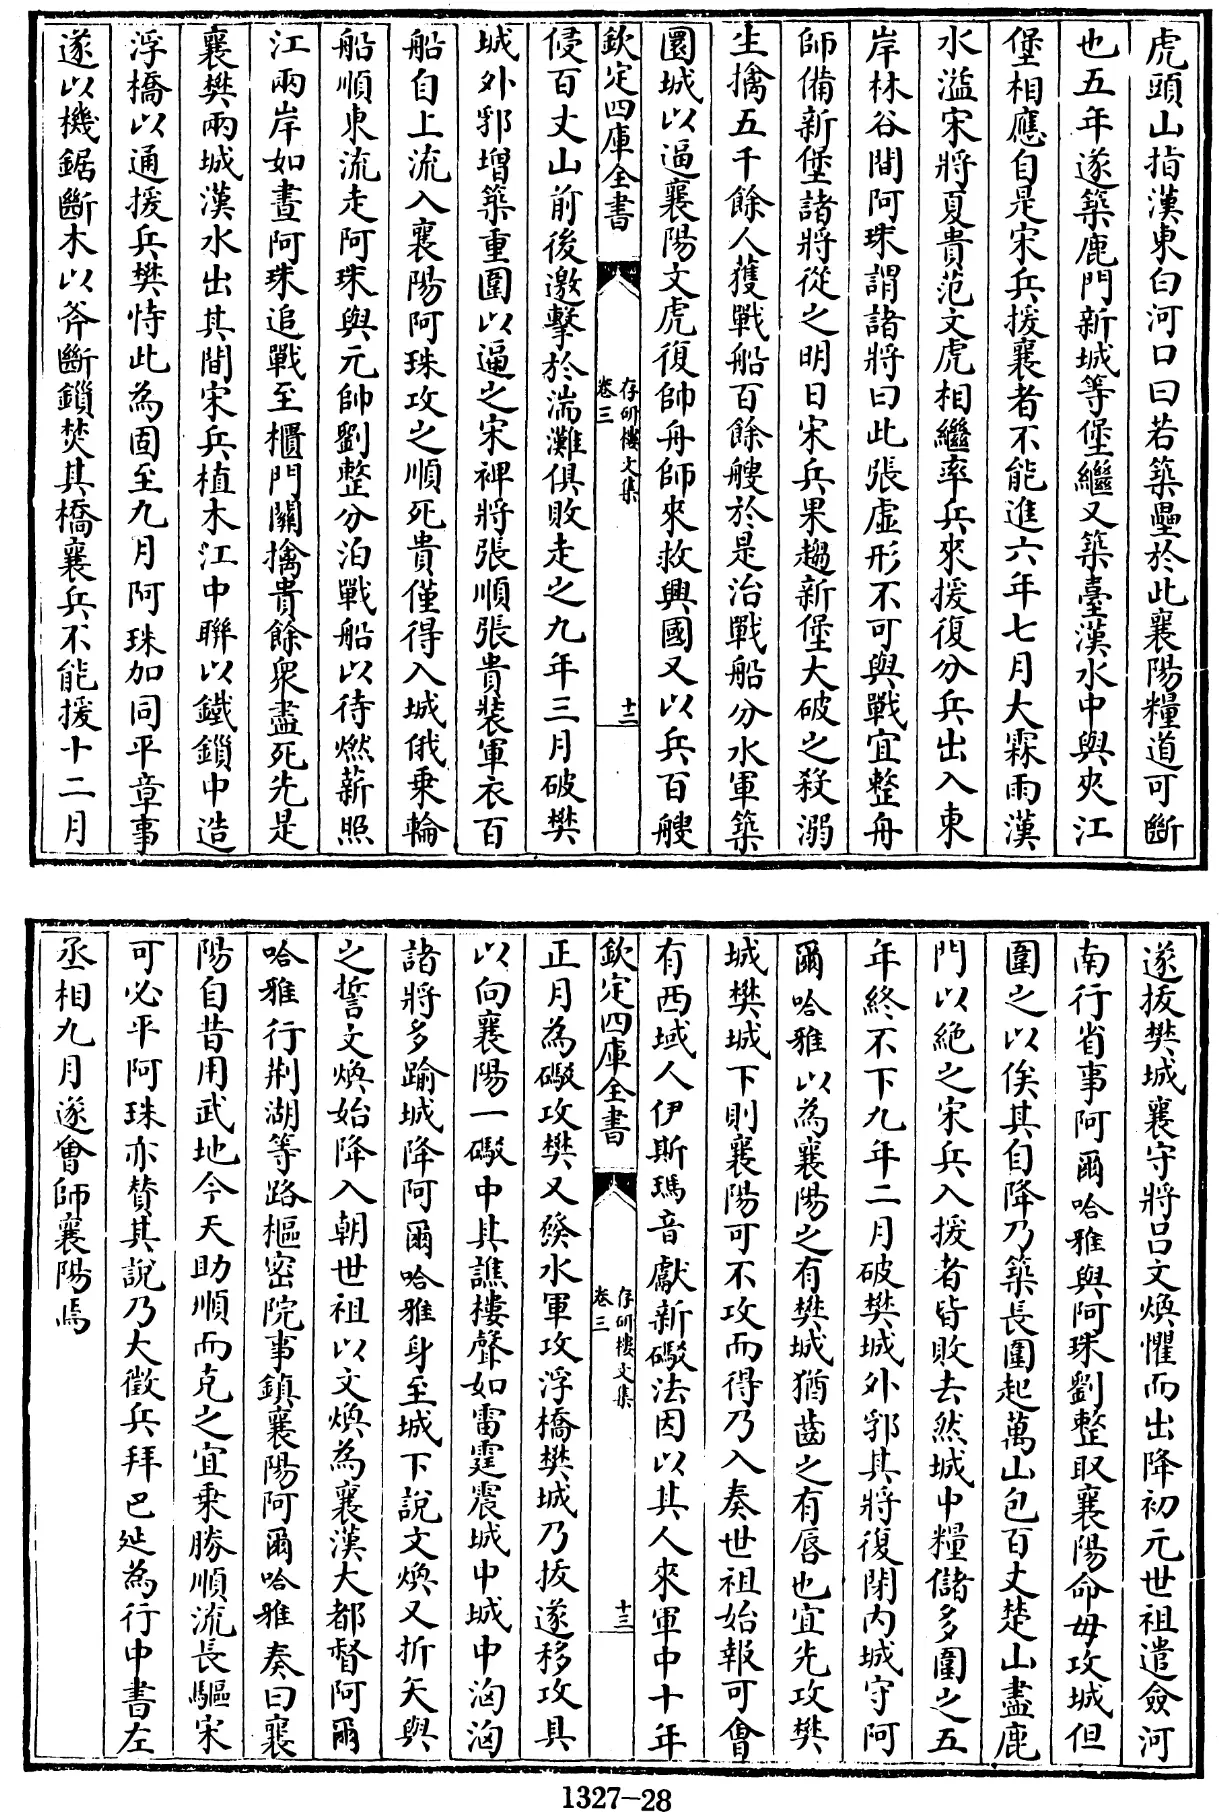 虎頭山指漢東白河口曰若築壘於此襄陽糧道可斷
也五年遂築鹿門新城等堡繼又築臺漢水中與夾江
堡相應自是宋兵援襄者不能進六年七月大霖雨漢
水溢宋將夏貴范文虎相繼率兵來援復分兵出入東
岸林谷間阿珠謂諸將曰此張虛形不可與戰宜整舟
師備新堡諸將從之明日宋兵果趨新堡大破之殺溺
生擒五千餘人獲戰船百餘艘於是治戰船分水軍築
圜城以逼襄陽文虎復帥舟師來救興國又以兵百艘
欽定四庫全書
存研樓文集
卷三
十二
侵百丈山前後邀擊於湍灘俱敗走之九年三月破樊
城外郛增築重圍以逼之宋裨將張順張貴裝軍衣百
船自上流入襄陽阿珠攻之順死貴僅得入城俄乗輪
船順東流走阿珠與元帥劉整分泊戰船以待燃薪照
江兩岸如晝阿珠追戰至櫃門關擒貴餘衆盡死先是
襄樊兩城漢水出其間宋兵植木江中聯以鐵鎖中造
浮橋以通援兵樊恃此為固至九月阿珠加同平章事
遂以機鋸斷木以斧斷鎖焚其橋襄兵不能援十二月
遂拔樊城襄守將呂文煥懼而出降初元世祖遣僉河
南行省事阿爾哈雅與阿珠劉整取襄陽命毋攻城但
圍之以俟其自降乃築長圍起萬山包百丈楚山盡鹿
門以絶之宋兵入援者皆敗去然城中糧儲多圍之五
年終不下九年二月破樊城外郛其將復閉內城守阿
爾哈雅以為襄陽之有樊城猶齒之有唇也宜先攻樊
城樊城下則襄陽可不攻而得乃入奏世祖始報可會
有西域人伊斯瑪音獻新礮法因以其人來軍中十年
欽定四庫全書
存研樓文集
卷三
十三
正月為礮攻樊又發水軍攻浮橋樊城乃拔遂移攻具
以向襄陽一礮中其譙樓聲如雷霆震城中城中洶洶
諸將多踰城降阿爾哈雅身至城下說文煥又折矢與
之誓文煥始降入朝世祖以文煥為襄漢大都督阿爾
哈雅行荆湖等路樞密院事鎮襄陽阿爾哈雅奏曰襄
陽自昔用武地今天助順而克之宜乗勝順流長驅宋
可必平阿珠亦贊其說乃大徵兵拜巴延為行中書左
丞相九月遂會師襄陽焉
1327-28